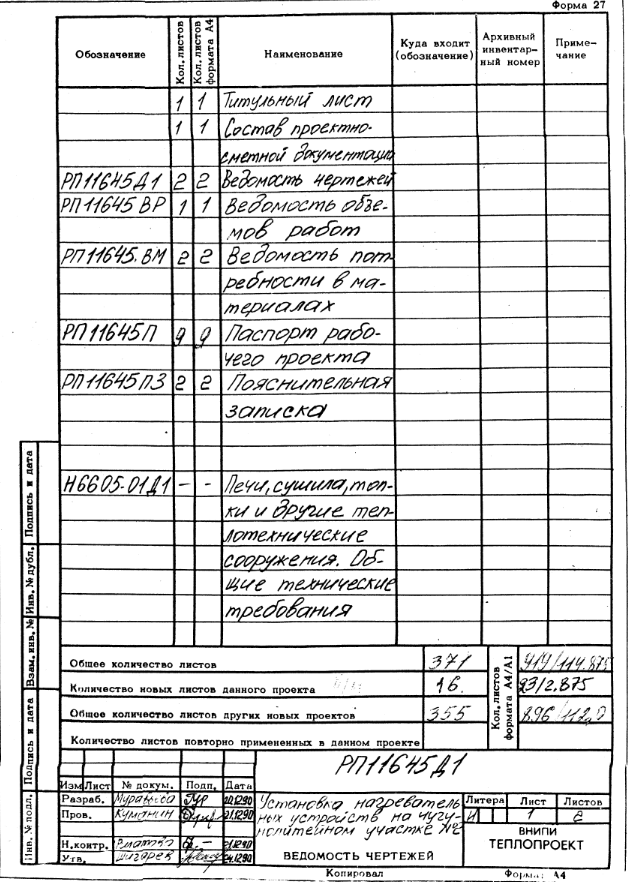 Форма 27
Обозначение Кол. листов Кол. листов формата А4 Наименование Куда входит (обозначение) Архивный инвентарный номер Примечание
1 1 Титульный лист
1 1 Состав проектно-
сметной документации
РП11645Д1 2 2 Ведомость чертежей
РП11645 ВР 1 1 Ведомость объе-
мов работ
РП11645.ВМ 2 2 Ведомость пот-
ребности в ма-
териалах
РП11645П 9 9 Паспорт рабо-
чего проекта
РП11645ПЗ 2 2 Пояснительная
записка
Н6605-01Д1 - - Печи, сушила, топ-
ки и другие теп-
лотехнические
сооружения. Об-
щие технические
требования
Подпись и дата
Инв. № дубл.
Взам. инв. №
Подпись и дата
Инв. № подл.
Общее количество листов 371
Количество новых листов данного проекта 16
Общее количество листов других новых проектов 355
Количество листов повторно примененных в данном проекте
Кол. листов
формата А4/А1
23/2.875
РП11645Д1
Изм Лист № докум. Подп. Дата
Разраб.
Пров. 21.12.90
Н.контр.
Утв. 24.12.90
Установка нагреватель
ных устройств на чугу-
нолитейном участке №2
ВЕДОМОСТЬ ЧЕРТЕЖЕЙ
Литера Лист Листов
И 1 2
ВНИПИ
ТЕПЛОПРОЕКТ
Копировал Формат А4